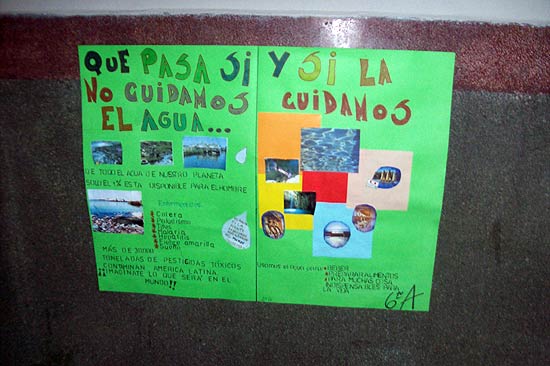 QUE PASA SI
NO CUIDAMOS
EL AGUA...
DE TODO EL AGUA DE NUESTRO PLANETA
SOLO EL 1% ESTA DISPONIBLE PARA EL HOMBRE
Enfermedades
Cólera
Paludismo
Tifus
Malaria
Hepatitis
Fiebre amarilla
MAS DE 30000
TONELADAS DE PESTICIDAS TÓXICOS
CONTAMINAN AMERICA LATINA
¡¡IMAGINATE LO QUE SERÁ EN EL
MUNDO!!
Y SI LA
CUIDAMOS
Usamos el agua para: BEBER
PREPARAR ALIMENTOS
PARA MUCHAS COSAS
INDISPENSABLES PARA
LA VIDA
6º A